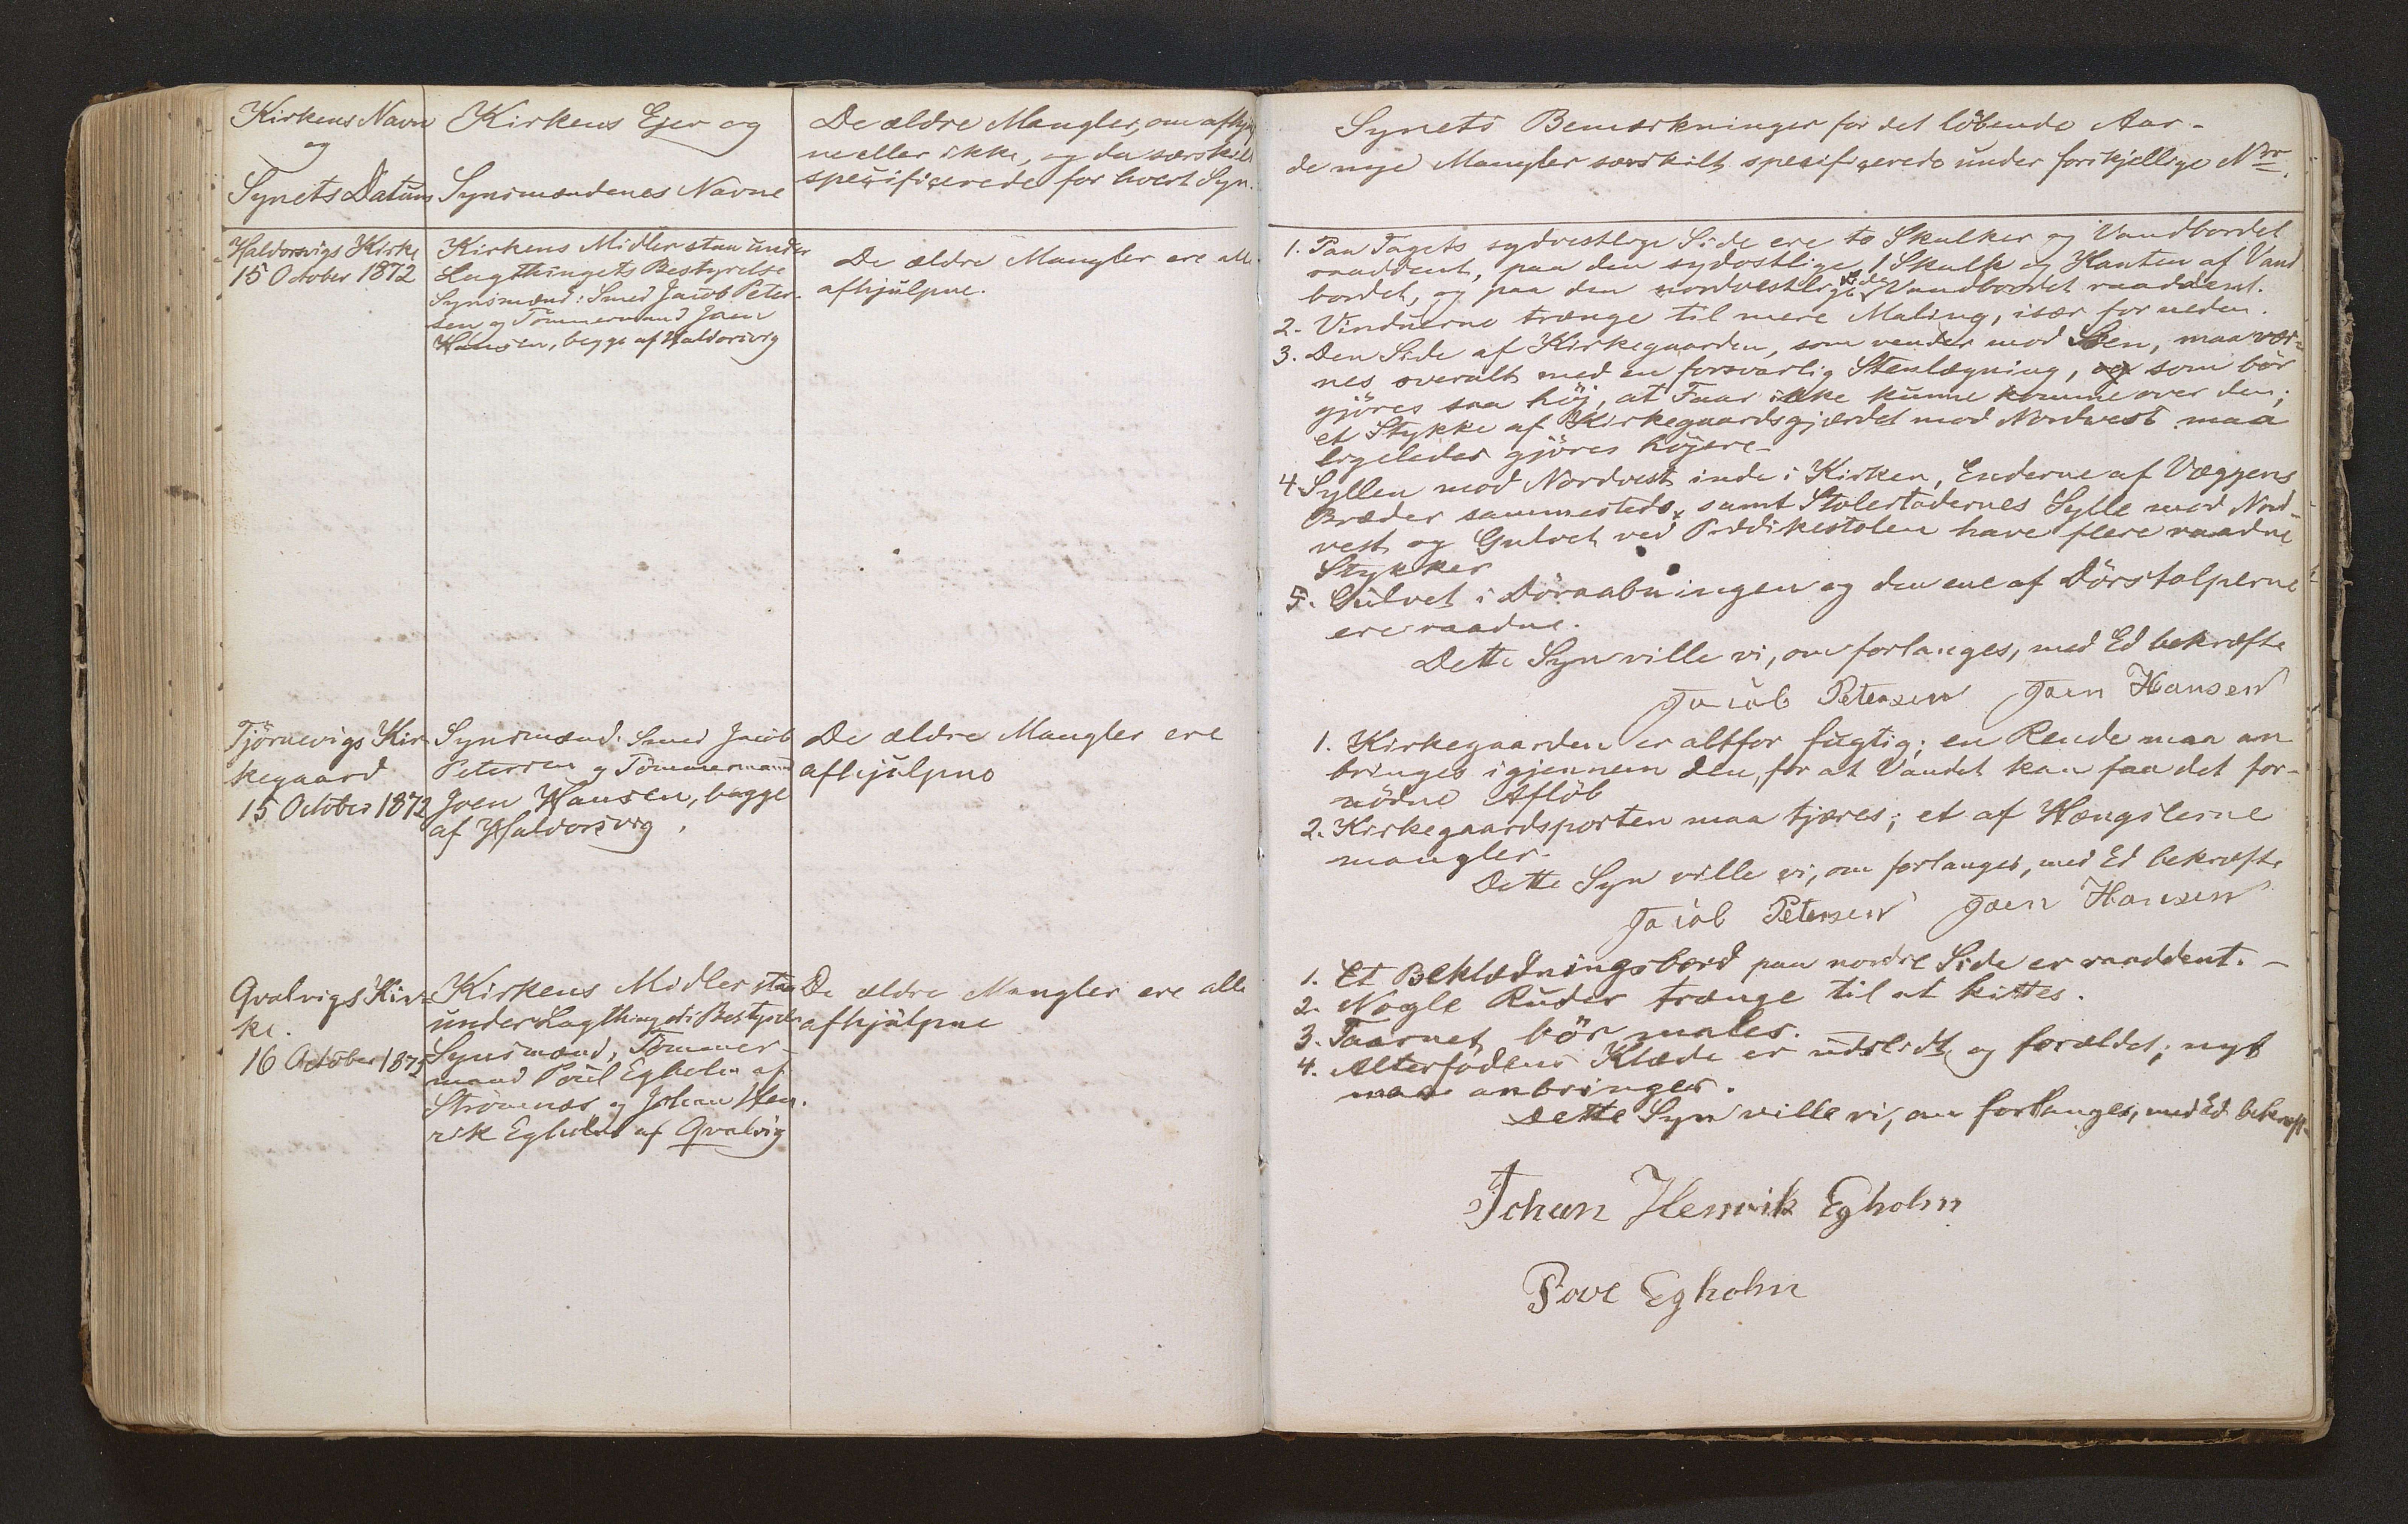 Kirkens Navn
og
Synets Datum
Kirkens Ejer og
Synsmændenes Navne
De ældre Mangler, om afhjulp
ne eller ikke, og da særskilt
specificerede for hvert Syn.
Haldorsvigs Kirke
15 October 1872
Kirkens Midler staa under
Lagthingets Bestyrelse
Synsmænd: Smed Jacob Peter-
sen og Tømmermand Joen
Hansen, begge af Haldorsvig
De ældre Mangler ere alle
afhjulpne.
Tjørnevigs Kir-
kegaard
15 October 1872
Synsmænd: Smed Jacob
Petersen og Tømmermand
Joen Hansen, begge
af Haldorsvig.
De ældre Mangler ere
afhjulpne
Qvalvigs Kir-
ke.
16 October 1872
Kirkens Midler staa
under Lagthingets Bestyrelse
Synsmænd, Tömmer-
mand Poul Egholm af
Strömnæs og Johan Hen-
rik Egholm af Qvalvig
De ældre Mangler ere alle
afhjulpne
Synets Bemærkninger for det löbende Aar-
de nye Mangler særskilt specificerede under forskjellige Nr.
1. Paa Tagets sydvestlige Side ere to Skalker og Vandbordet
raaddent, paa den sydostlige 1 Skalk og Kanten af Vand
bordet, og paa den nordvestlige Side Vandbordet raaddent.
2. Vinduerne trænge til mere Maling, især forneden.
3. Den Side af Kirkegaarden, som vender mod Søen, maa vær-
nes overalt med en forsvarlig Stenlægning, og som bör
gjöres saa höj, at Faar ikke kunne komme over den;
et Stykke af Kirkegaardsgjærdet mod Nordvest maa
ligeledes gjöres höjere-
4. Syllen mod Nordvest inde i Kirken, Enderne af Væggens
Bræder sammesteds, samt Stolestadernes Sylle mod Nord-
vest og Gulvet ved Prædikestolen have flere raadne
Stykker
5. Gulvet i Döraabningen og den ene af Dörstolperne
ere raadne.
Dette Syn ville vi, om forlanges, med Ed bekræfte
Jacob Petersen Joen Hansen
1. Kirkegaarden er altfor fugtig; en Rende maa an
bringes igjennem den, for at Vandet kan faa det for-
nödne Aflöb
2. Kirkegaardsporten maa tjæres; et af Hængslerne
mangler.
Dette Syn ville vi, om forlanges, med Ed bekræfte
Jacob Petersen Joen Hansen
1. Et Beklædningsbord paa nordre Side er raaddent. -
2. Nogle Ruder trænge til at kittes.
3. Taarnet bör males.
4. Alterfodens Klæde er udslidt og forældet; nyt
maa anbringes.
Dette Syn ville vi, om forlanges, med Ed bekræft-
Johan Henrik Egholm
Povl Egholm